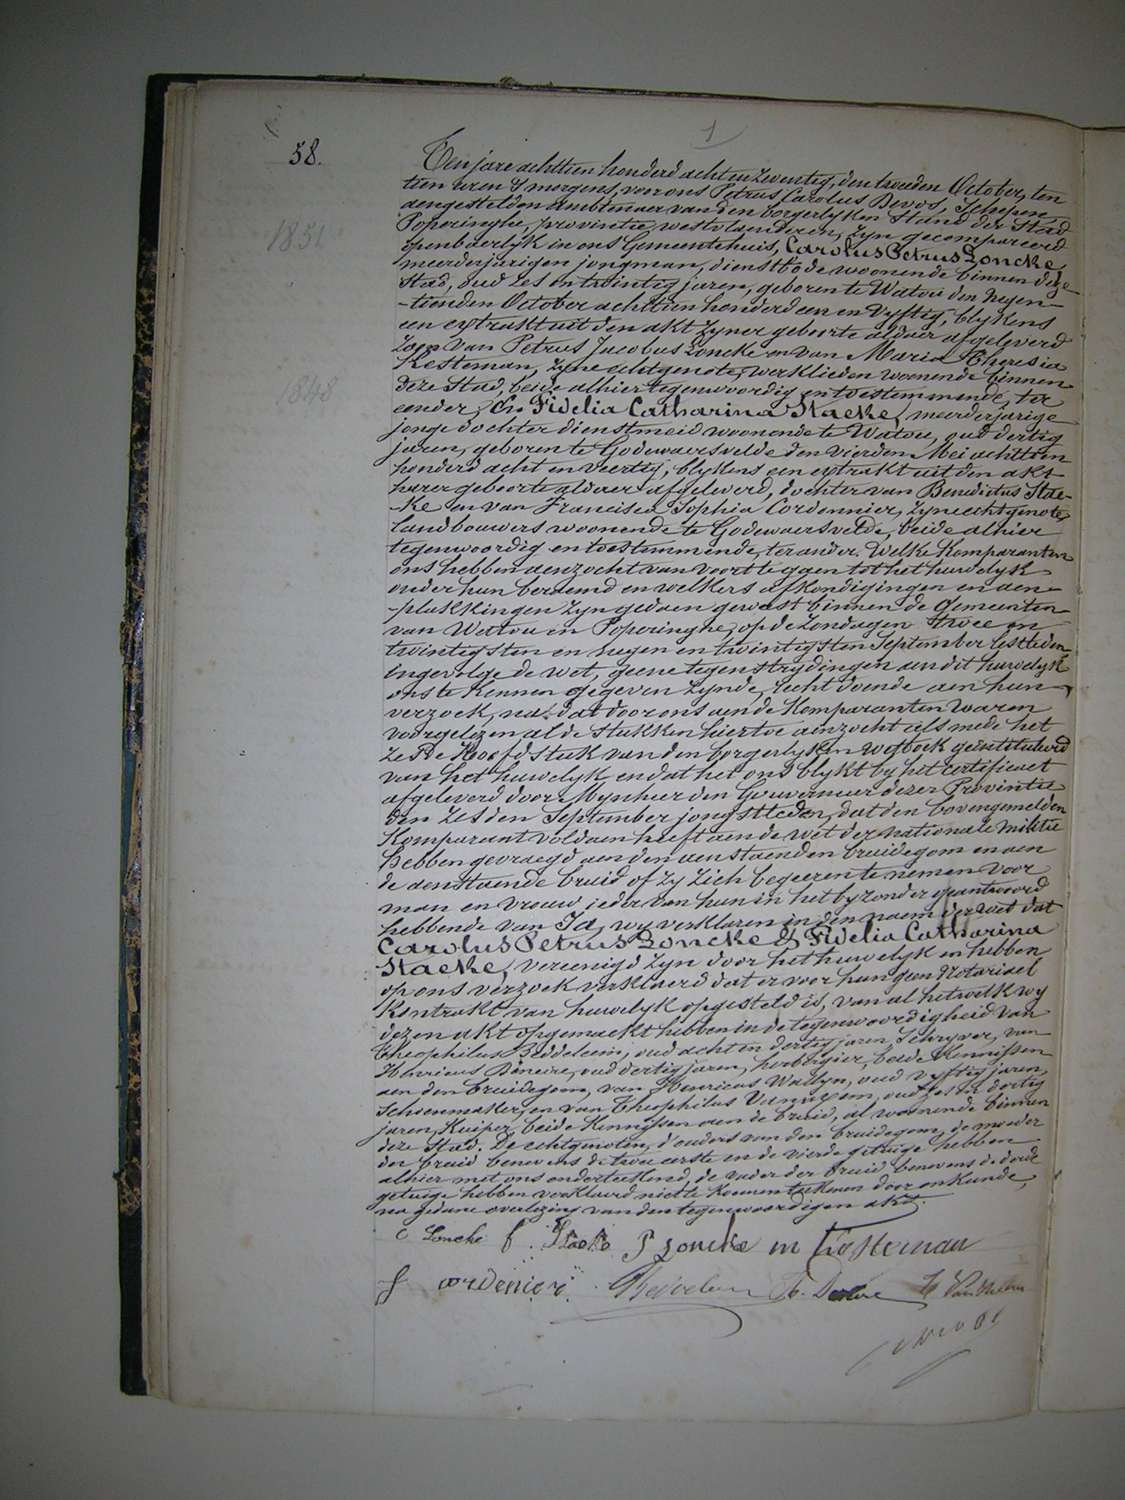 1
58.
Ten jare achttien honderd acht en zeventig, den tweeden October, ten
tien uren 's morgens, voor ons Petrus Carolus Devos, Schepene
aengestelden Ambtenaer van den borgerlyken Stand der Stad
Poperinghe, provintie westvlaenderen, zyn gecompareerd
1851
openbaerlyk in ons Gemeentehuis, Carolus Petrus Loncke,
meerderjarigen jongman, dienstbode woonende binnen deze
Stad, oud zes en twintig jaren, geboren te Watou den negen-
-tienden October achttien honderd een en vyftig, blykens
een extrakt uit den akt zyner geboorte aldaer afgeleverd
zoon van Petrus Jacobus Loncke en van Maria Theresia
Kesteman, zyne echtgenote, werklieden woonende binnen
1848
deze Stad, beide alhier tegenwoordig en toestemmende, ter
eender, En Fidelia Catharina Staeke, meerderjarige
jonge dochter dienstmeid woonende te Watou, oud dertig
jaren, geboren te Godewaersvelde den vierden Mei achttien
honderd acht en veertig, blykens een extrakt uit den akt
harer geboorte aldaer afgeleverd, dochter van Benedictus Stae-
-ke en van Francisca Sophia Cordonnier, zyne echtgenote,
landbouwers woonende te Godewaersvelde, beide alhier
tegenwoordig en toestemmende, ter ander. Welke Komparanten
ons hebben aenzocht van voort te gaen tot het huwelyk
onder hun beraemd en welkers afkondigingen en aen-
-plakkingen zyn gedaen geweest binnen de Gemeenten
van Watou en Poperinghe, op de Zondagen twee en
twintigsten en negen en twintigsten September lestleden
Ingevolge de wet, geene tegenstrydingen aen dit huwelyk
ons te kennen gegeven zynde, recht doende aen hun
verzoek, na dat door ons aen de Komparanten waren
voorgelezen al de Stukken hiertoe aenzocht als mede het
zesde Hoofdstuk van den borgerlyken wetboek geintituleerd
van het huwelyk en dat het ons blykt by het certificaet
afgeleverd door Mynheer den Gouverneur dezer Provintie
den zesden September jongstleden, dat den bovengemelden
Komparant voldaen heeft aen de wet der nationale militie
Hebben gevraegd aen den aenstaenden bruidegom en aen
de aenstaende bruid of zy zich begeeren te nemen voor
man en vrouw, ieder van hun in het byzonder geantwoord
hebbende van Ja, wy verklaren in den naem der wet dat
Carolus Petrus Loncke & Fidelia Catharina
Staeke, vereenigd zyn door het huwelyk en hebben
op ons verzoek verklaerd dat er voor hun geen Notarieel
Kontrakt van huwelyk opgesteld is, van al hetwelk wy
dezen akt opgemaekt hebben in de tegenwoordigheid van
Theophilus Beddeleem, oud acht en dertig jaren, Schryver, van
Henricus oud dertig jaren, herbergier, beide Kennissen
aen den bruidegom, van Henricus Wallyn, oud vyftig jaren,
Schoenmaker, en van Theophilus oud zes en dertig
jaren, Kuiper, beide Kennissen aen de bruid, al woonende binnen
deze Stad. De echtgenoten, d'ouders van den bruidegom, de moeder
der bruid benevens de twee eerste en de vierde getuige hebben
alhier met ons onderteekend, de vader der bruid benevens de derde
getuige hebben verklaerd niet te konnen teekenen door onkunde,
na gedane overlezing van den tegenwoordigen akt.
C Loncke f. Staeke P Loncke m Kesteman
f Cordenier